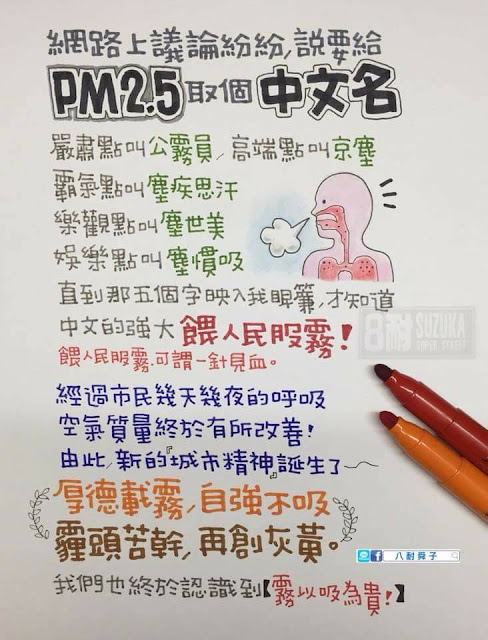 網路上議論紛紛,說要給
PM2.5取個中文名
嚴肅點叫公霧員,高端點叫京塵
霸氣點叫塵疾思汗
樂觀點叫塵世美
娛樂點叫塵慣吸
直到那五個字映入我眼簾,才知道
中文的強大 餵人民服霧!
餵人民服霧,可謂一針見血。
經過市民幾天幾夜的呼吸
空氣質量終於有所改善!
由此,新的『城市精神』誕生了~
厚德載霧,自強不吸
霾頭苦幹,再創灰黃。
我們也終於認識到【霧以吸為貴!】
8耐 SUZUKA
SUPER STREET
f 八耐舜子